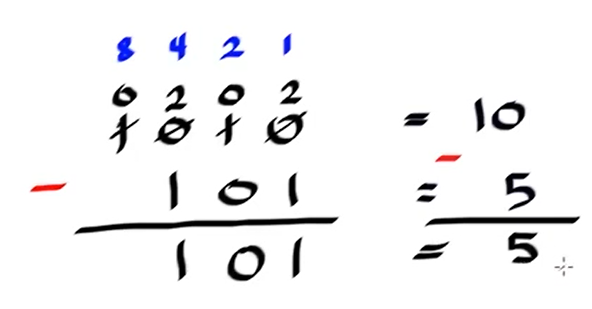 8 4 2 1
0 2 0 2
1 0 1 0 = 10
- 1 0 1 - = 5
1 0 1 = 5